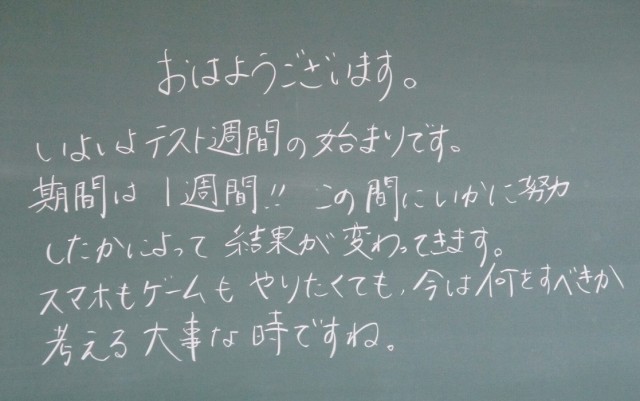 おはようございます。
いよいよテスト週間の始まりです。
期間は1週間!! この間にいかに努力
したかによって結果が変わってきます。
スマホもゲームもやりたくても、今は何をすべきか
考える大事な時ですね。